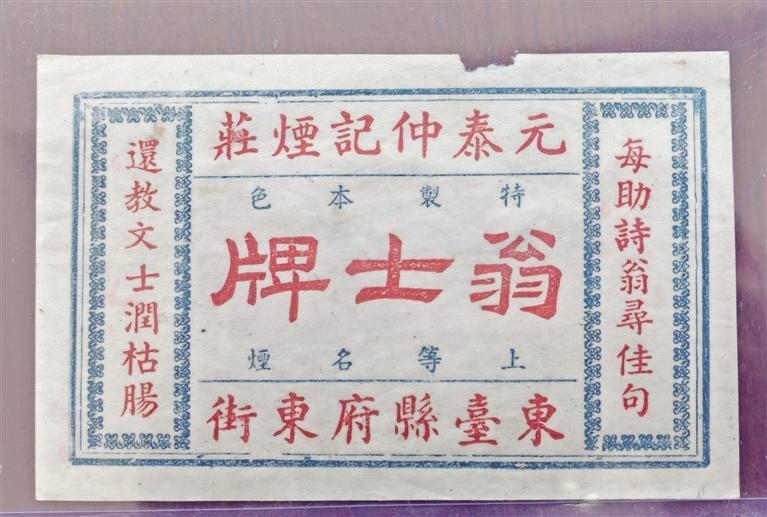 元泰仲記煙莊
每助詩翁尋佳句
特製本色
翁士牌
上等名煙
東臺縣府東街
還教文士潤枯腸